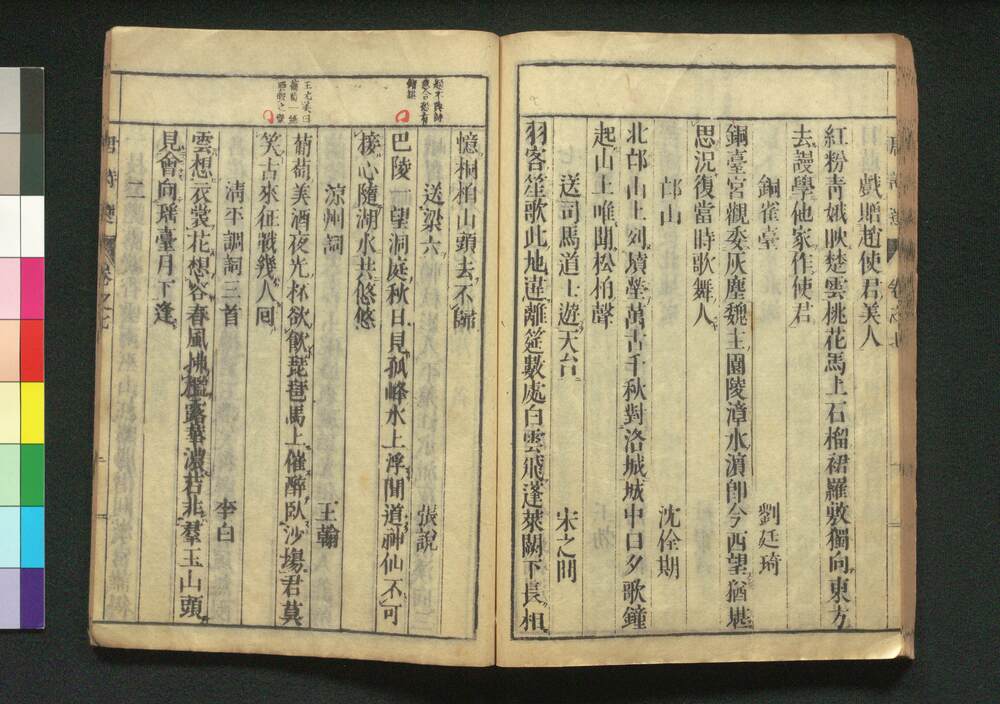 戲贈趙使君美人
紅粉靑娥映楚雲桃花馬上石榴裙羅敷獨向東方
去謾學他家作使君
銅雀臺
劉廷琦
銅臺宮觀委灰塵魏主園陵漳水濵卽今西望猶堪
思況復當時歌舞人
邙山
沈佺期
北邙山上列墳塋萬古千秋對洛城城中日夕歌鐘
起山上唯聞松柏聲
送司馬道士遊天台
宋之問
羽客笙歌此地違離筵數處白雲飛蓬萊闕下長相
憶桐柏山頭去不歸
送梁六
張說
巴陵一望洞庭秋日見孤峰水上浮聞道神仙不可
接心隨湖水共悠悠
涼州詞
王翰
葡萄美酒夜光杯欲飮琵琶馬上催醉臥沙塲君莫
笑古來征戰幾人囘
淸平調詞三首
李白
雲想衣裳花想容春風拂檻露華濃若非羣玉山頭
見會向瑤臺月下逢
二
唐詩選
卷之七